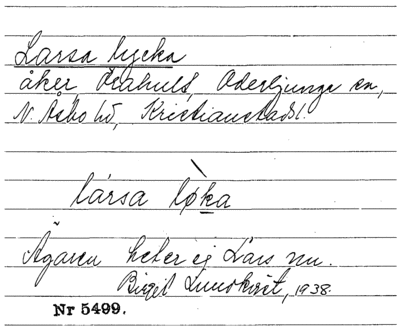 Larsa lycka
åker, Örahult, Oderljunga sn,
N. Åsbo hd, Kristianstads l.
lársa lø̀ka
Ägaren heter ej Lars nu.
Birgit Lundkvist, 1938.
Nr 5499.